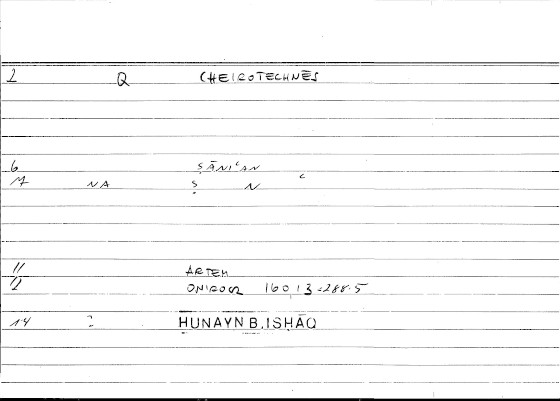 2 Q CHEIROTECHNĒS
6 ṢĀNIʿAN
7 NA Ṣ N ʿ
11 ARTEM
12 ONIROCR 160,13=288.5
14 HUNAYN B.ISHĀQ